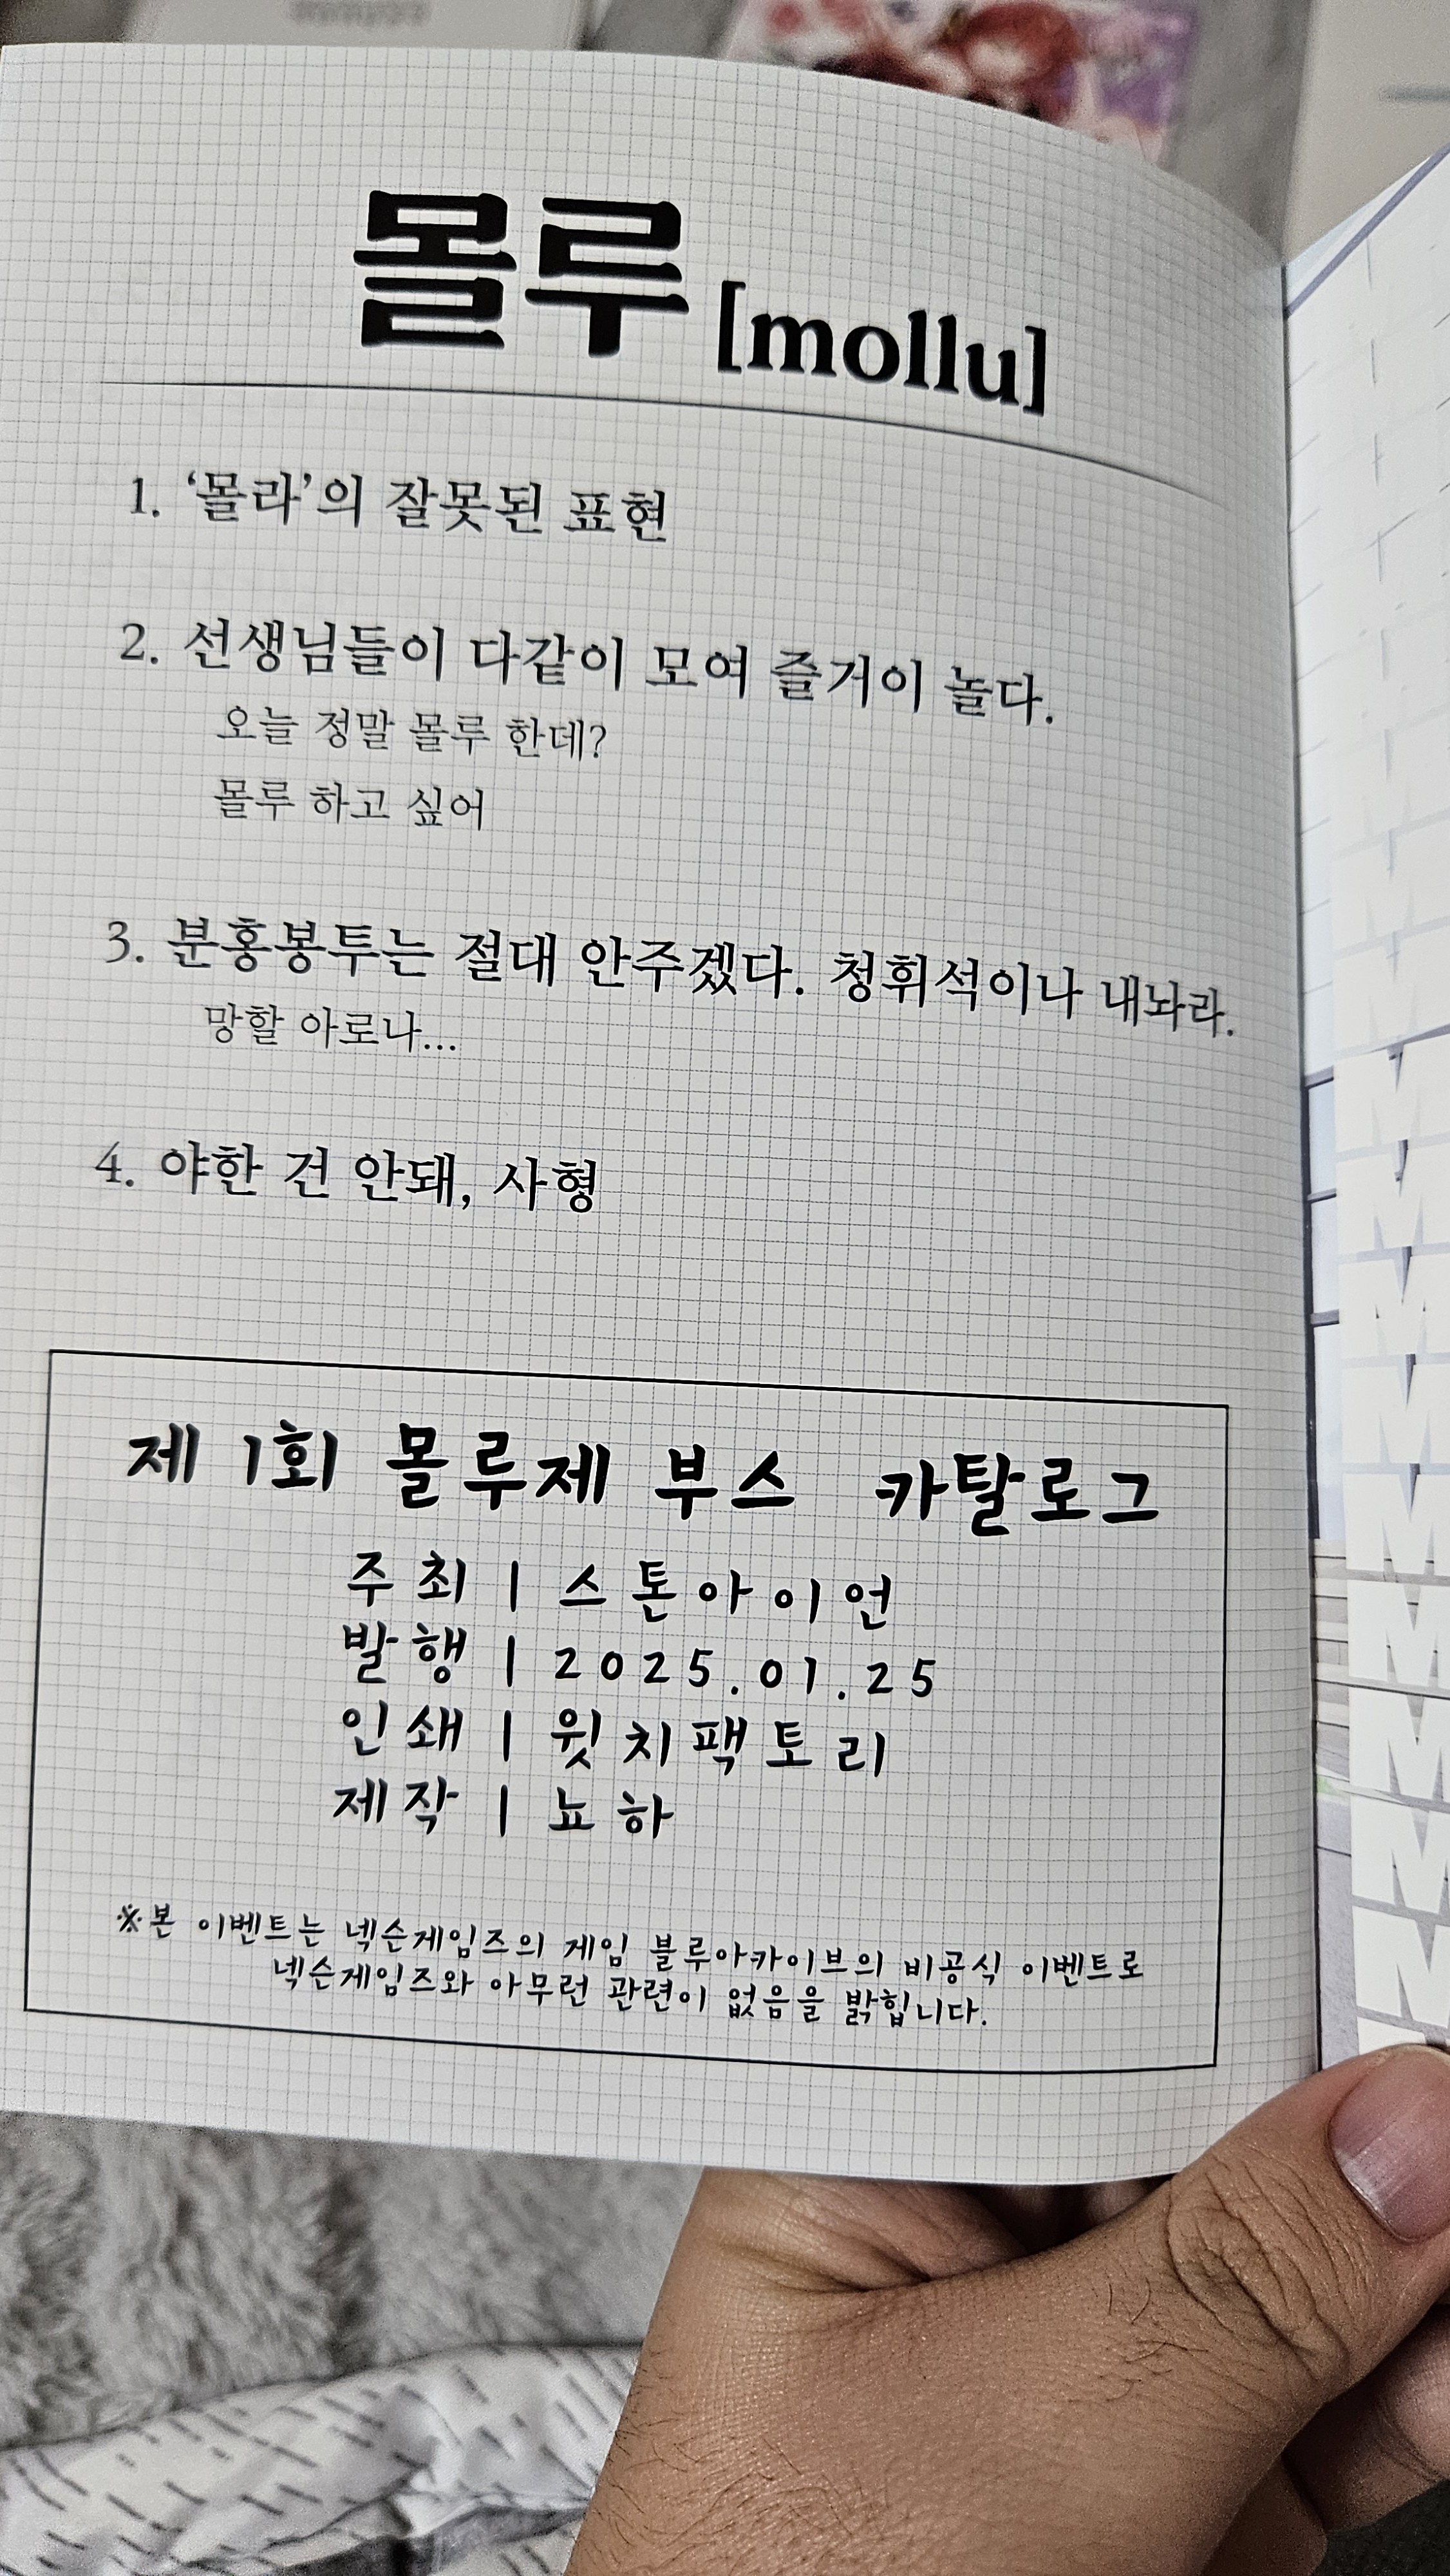 몰루 [mollu]
1. ‘몰라’의 잘못된 표현
2. 선생님들이 다같이 모여 즐거이 놀다.
오늘 정말 몰루 한데?
몰루 하고 싶어
3. 분홍봉투는 절대 안주겠다. 청휘석이나 내놔라.
망할 아로나...
4. 야한 건 안돼, 사형
제 1회 몰루제 부스 카탈로그
주최 | 스톤아이언
발행 | 2025.01.25
인쇄 | 윗치팩토리
제작 | 뇨하
※본 이벤트는 넥슨게임즈의 게임 블루아카이브의 비공식 이벤트로
넥슨게임즈와 아무런 관련이 없음을 밝힙니다.